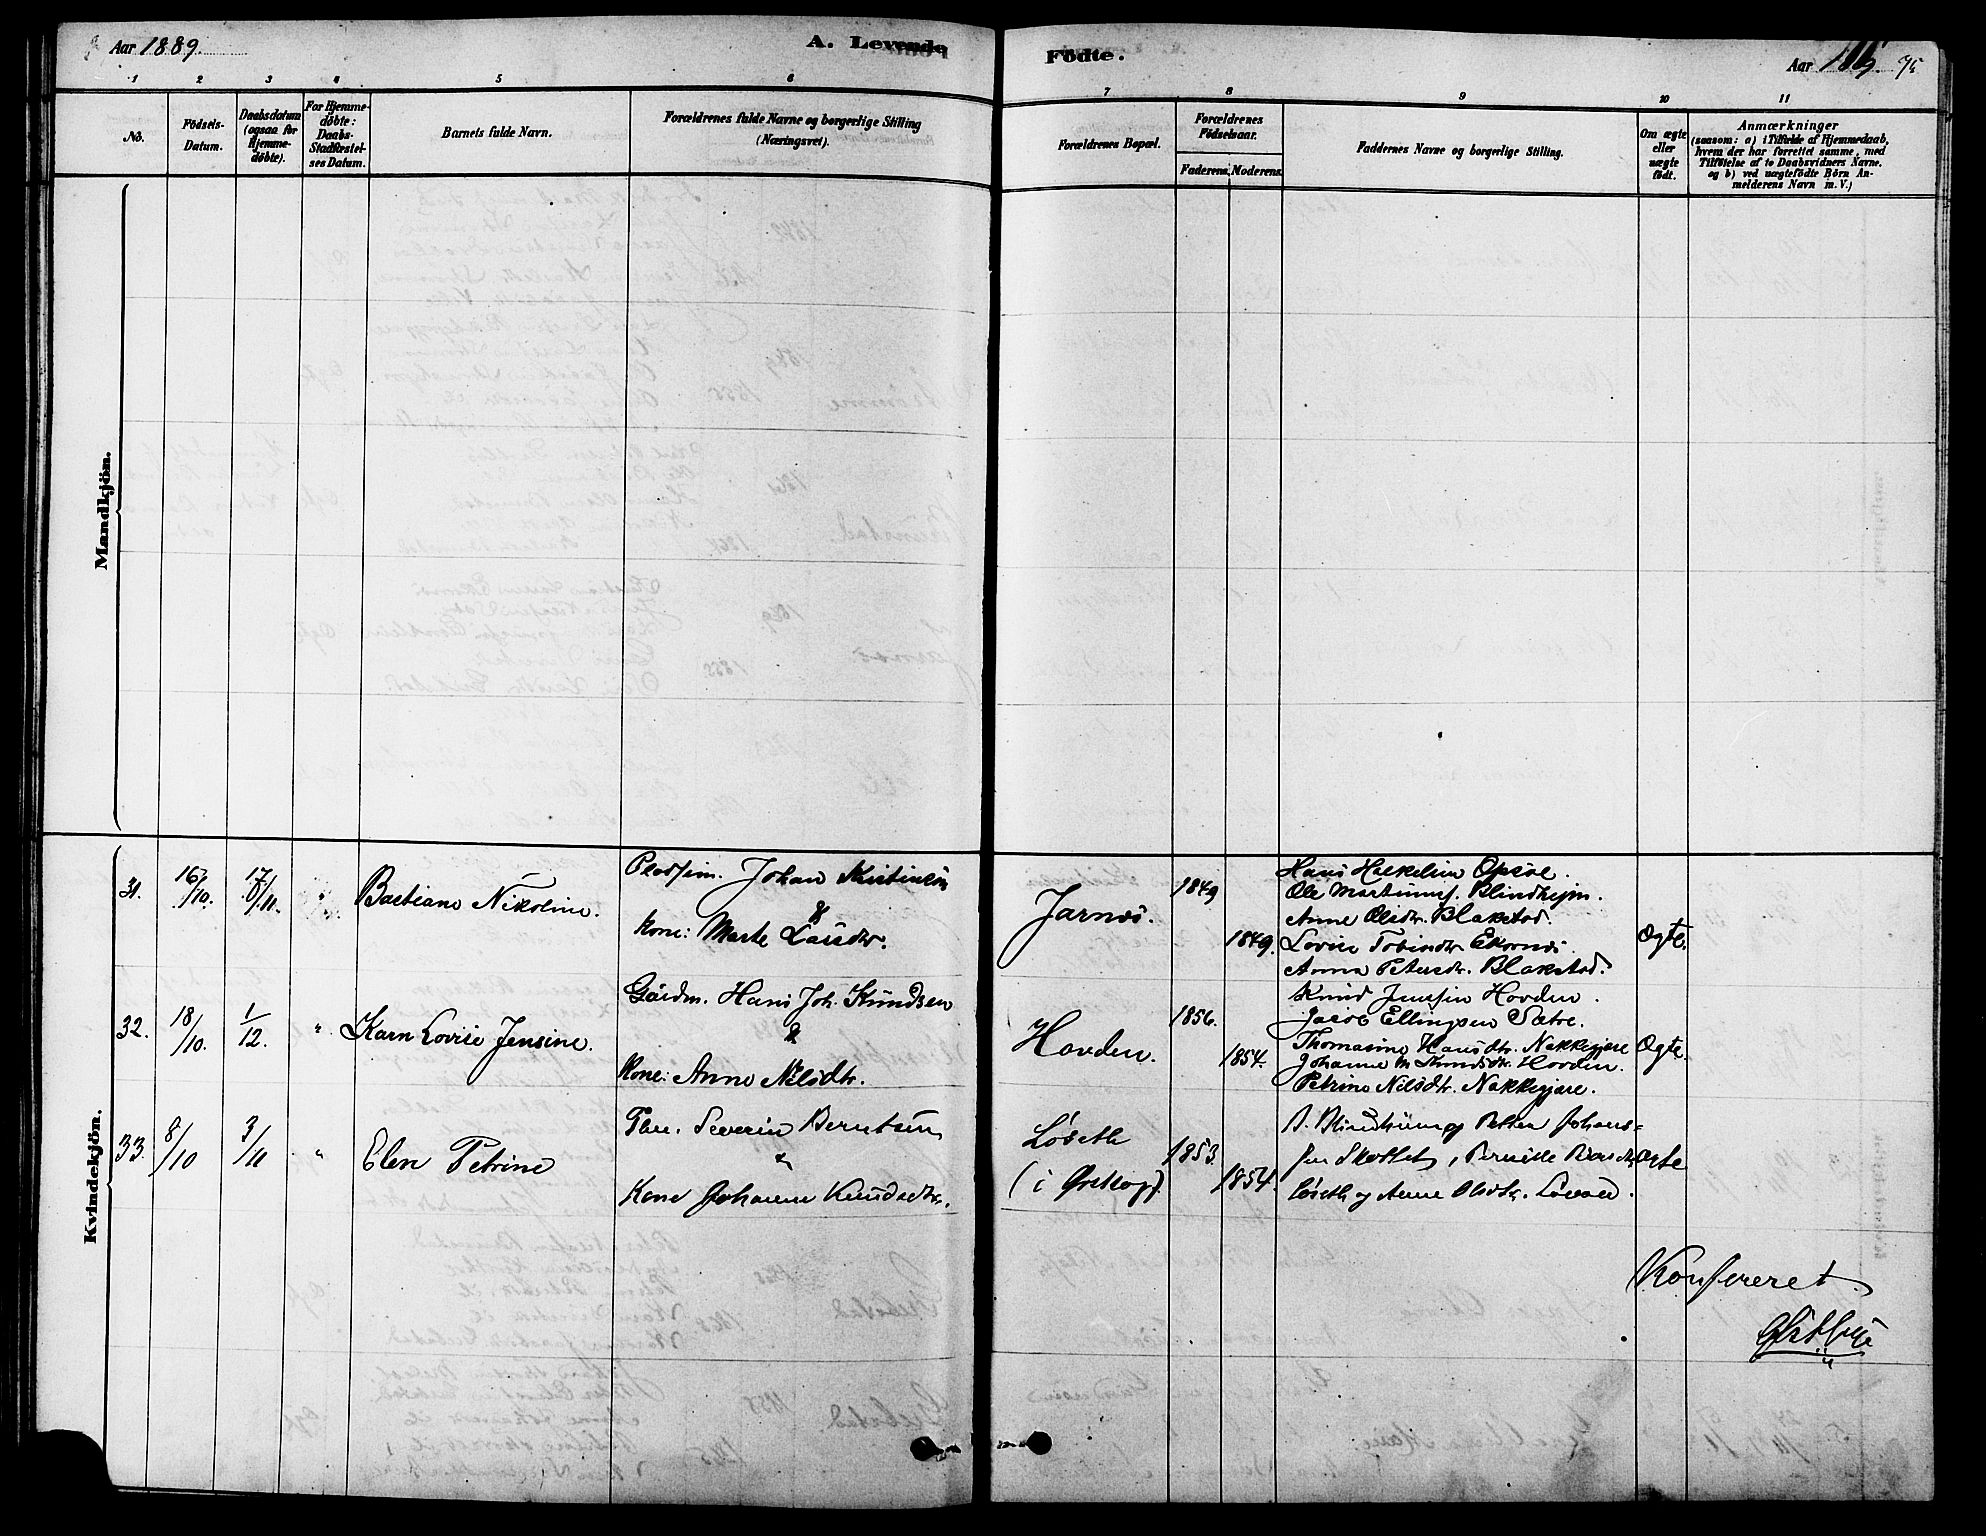 Aar 1889.
A. Levende
Födte.
Aar
1 2 3 4 5 6
7 8 9 10 11
No.
Födsels-
Datum.
Daabsdatum
(ogsaa for
Hjemme-
döbte).
For Hjemme-
döbte:
Daabs-
Stadfæstel-
ses Datum.
Barnets fulde Navn.
Forældrenes fulde Navne og borgerlige Stilling
(Næringsvei).
Forældrenes Bopæl.
Forældrenes
Födselsaar.
Faderens. Moderens.
Faddernes Navne og borgerlige Stilling.
Om ægte
eller
uægte
födt.
Anmærkninger
(saasom: a) i Tilfælde af Hjemmedaab,
hvem der har forrettet samme, med
Tilföielse af to Daabsvidners Navne,
og b) ved uægtefödte Börn An-
melderens Navn m. V.)
Mandkjön.
Kvindekjön.
31. 16/10. 17/11. Bastiane Nikoline.
Pladsm. Johan Kristiansen
&
Kone: Marte Larsdtr.
Jarnes.
1849
1849.
Ole Martinus. Blindhejm.
Anne Olsdtr. Blakstad.
Lovise Tobiasdtr. Ekornes.
Anna Petersdtr. Blakstad.
Ægte.
32. 18/10. 1/12. " Karn Lovise Jensine.
Gårdm. Hans Joh. Knudsen
&
Kone: Anne Nilsdtr.
Hovden.
1856.
1854.
Knud Jensen Hovden.
Jacob Ellingsen Sætre.
Thomasine Hansdtr. Nakkegjære
Johanne M. Knudsdtr. Hovden.
Petrine Nilsdtr. Nakkegjære.
Ægte.
33. 8/10 3/11 " Elen Petrine
Severin Berntsen
&
Kone Johanne Knudsdtr.
Løseth
(i Ørskog).
1853.
1854.
og Petter Johans-
sen
Løseth og Anne Olsdtr.
Ægte
Konfereret